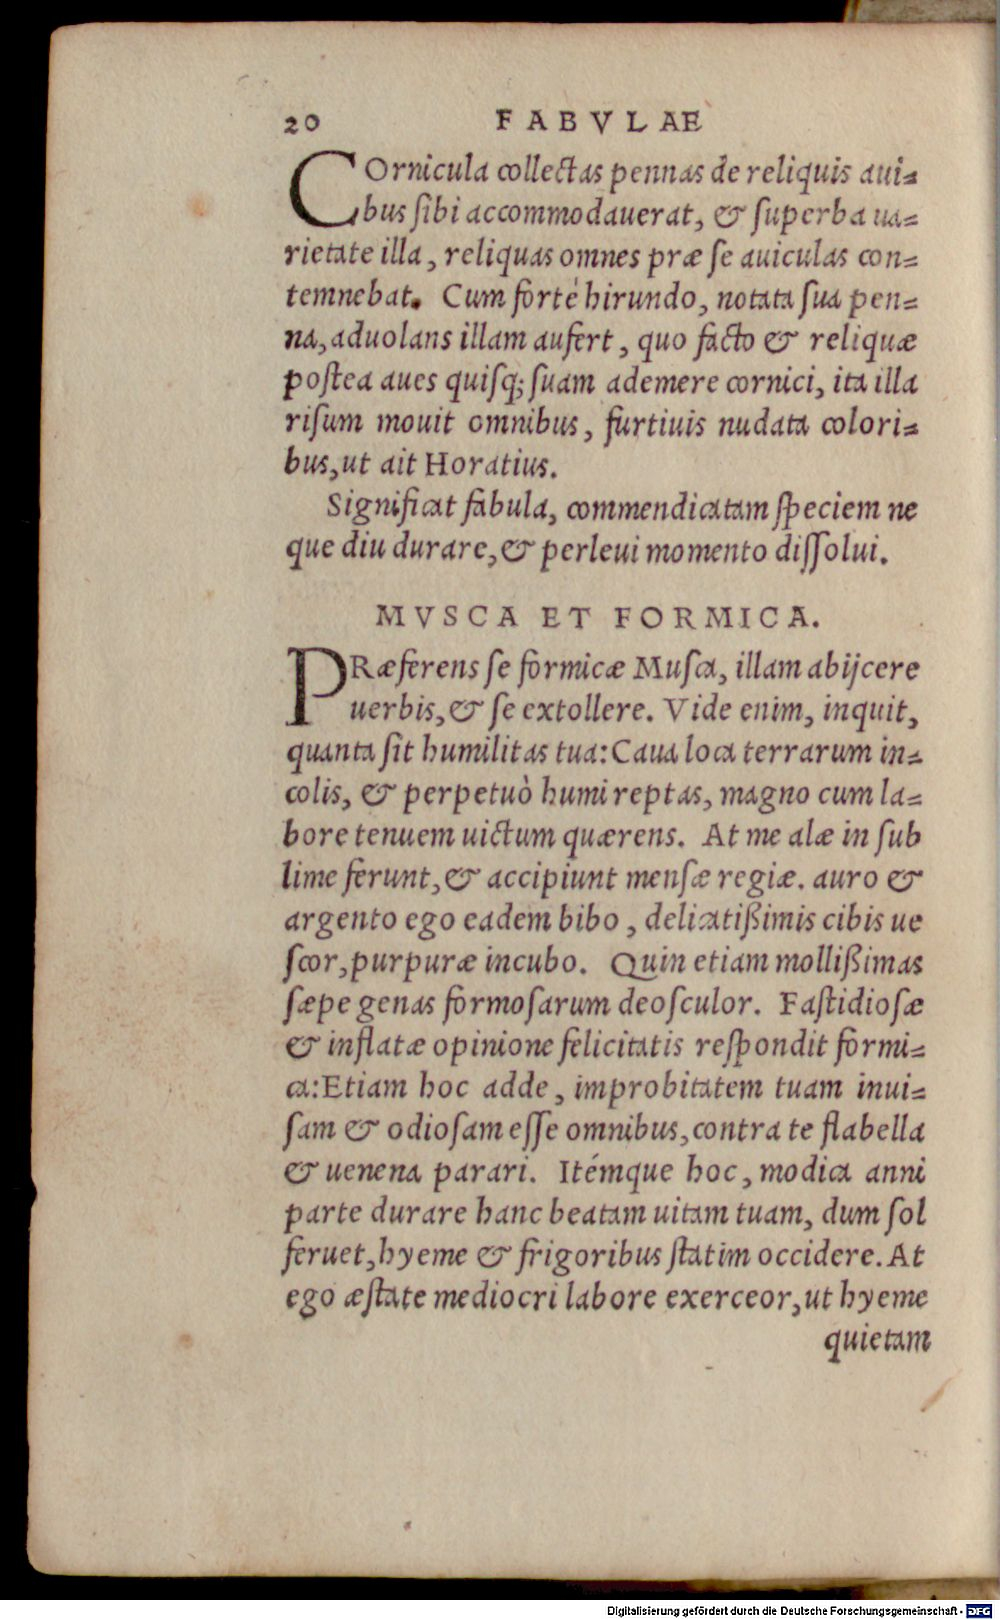 20 FABVLAE
COrnicula collectas pennas de reliquis aui-
bus sibi accommodauerat, & superba ua-
rietate illa, reliquas omnes præ se auiculas con-
temnebat. Cum fortè hirundo, notata sua pen-
na, aduolans illam aufert, quo facto & reliquæ
postea aues quisq; suam ademere cornici, ita illa
risum mouit omnibus, furtiuis nudata colori-
bus, ut ait Horatius.
Significat fabula, commendicatam speciem ne
que diu durare, & perleui momento dissolui.
MVSCA ET FORMICA.
PRæferens se formicæ Musca, illam abijcere
uerbis, & se extollere. Vide enim, inquit,
quanta sit humilitas tua: Caua loca terrarum in-
colis, & perpetuò humi reptas, magno cum la-
bore tenuem uictum quærens. At me alæ in sub
lime ferunt, & accipiunt mensæ regiæ. auro &
argento ego eadem bibo, delicatißimis cibis ue
scor, purpuræ incubo. Quin etiam mollißimas
sæpe genas formosarum deosculor. Fastidiosæ
& inflatæ opinione felicitatis respondit formi-
ca: Etiam hoc adde, improbitatem tuam inui-
sam & odiosam esse omnibus, contra te flabella
& uenena parari. Itémque hoc, modica anni
parte durare hanc beatam uitam tuam, dum sol
feruet, hyeme & frigoribus statim occidere. At
ego æstate mediocri labore exerceor, ut hyeme
quietam
Digitalisierung gefördert durch die Deutsche Forschungsgemeinschaft - DFG